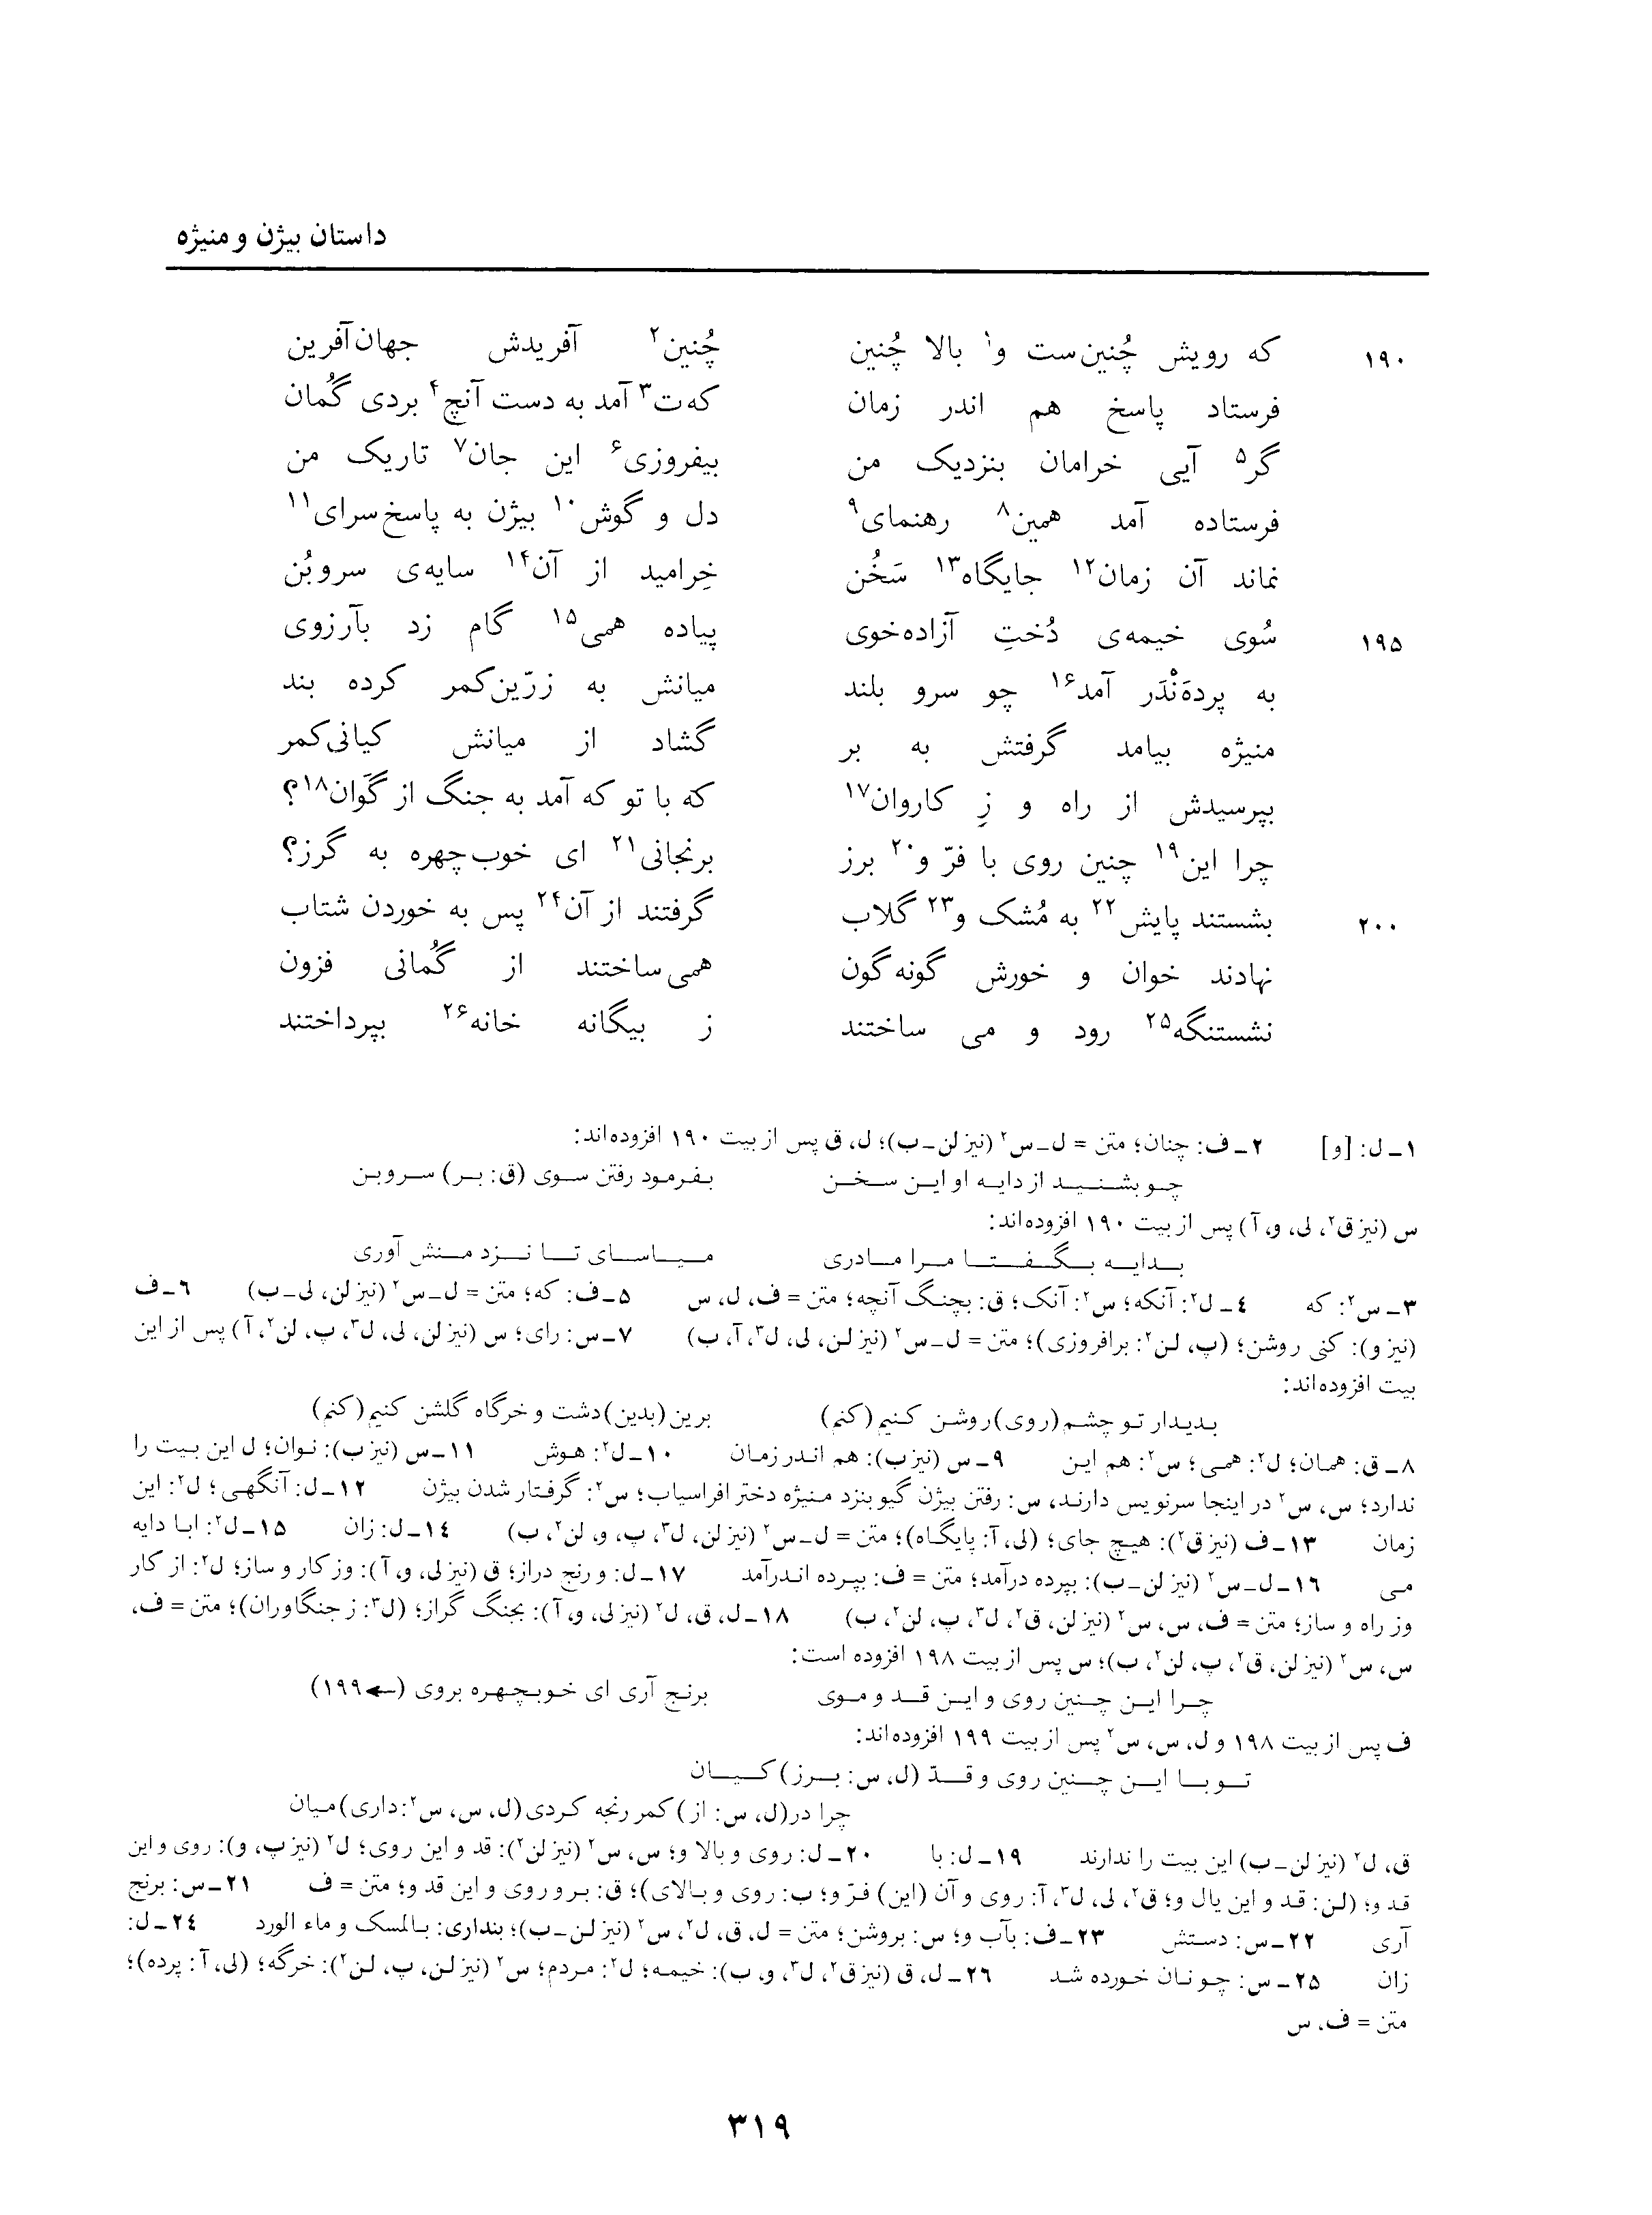 داستان بیژن و منیژه
۱۹۰ که رویش چُنین‌ست و۱ بالا چُنین چُنین۲ آفریدش جهان‌آفرین
فرستاد پاسخ هم اندر زمان که‌ت۳ آمد به دست آنچ۴ بردی گُمان
گر۵ آیی خرامان بنزدیک من بیفروزی۶ این جان۷ تاریک من
فرستاده آمد همین۸ رهنمای۹ دل و گوش۱۰ بیژن به پاسخ‌سرای۱۱
نماند آن زمان۱۲ جایگاه۱۳ سَخُن خِرامید از آن۱۴ سایه‌ی سروبُن
۱۹۵ سُوی خیمه‌ی دُختِ آزاده‌خوی پیاده همی۱۵ گام زد بآرزوی
به پرده‌َنْدَر آمد۱۶ چو سرو بلند میانش به زرّین‌کمر کرده بند
منیژه بیامد گرفتش به بر گشاد از میانش کیانی‌کمر
بپرسیدش از راه و زِ کاروان۱۷ که با تو که آمد به جنگ از گَوان۱۸؟
چرا این۱۹ چنین روی با فرّ و۲۰ برز برنجانی۲۱ ای خوب‌چهره به گرز؟
۲۰۰ بشستند پایش۲۲ به مُشک و۲۳ گلاب گرفتند از آن۲۴ پس به خوردن شتاب
نهادند خوان و خورش گونه‌گون همی‌ساختند از گُمانی فزون
نشستنگه۲۵ رود و می ساختند ز بیگانه خانه۲۶ بپرداختند
۱ـ ل: [و] ۲ـ ف: چنان؛ متن = ل ـ س۲ (نیز لن ـ ب)؛ ل، ق پس از بیت ۱۹۰ افزوده‌اند:
چو بشنید از دایه او این سخن بفرمود رفتن سوی (ق: بر) سروبن
س (نیز ق۲، لی، و، آ) پس از بیت ۱۹۰ افزوده‌اند:
بدایه بگفتا مرا مادری میاسای تا نزد منش آوری
۳ـ س۲: که ۴ـ ل۲: آنکه؛ س۲: آنک؛ ق: بچنگ آنچه؛ متن = ف، ل، س ۵ـ ف: که؛ متن = ل ـ س۲ (نیز لن، لی ـ ب) ۶ـ ف
(نیز و): کنی روشن؛ (پ، لن۲: برافروزی)؛ متن = ل ـ س۲ (نیز لن، لی، ل۳، آ، ب) ۷ـ س: رای؛ س (نیز لن، لی، ل۳، پ، لن۲، آ) پس از این
بیت افزوده‌اند:
بدیدار تو چشم (روی) روشن کنیم (کنم) برین (بدین) دشت و خرگاه گلشن کنیم (کنم)
۸ـ ق: همان؛ ل۲: همی؛ س۲: هم این ۹ـ س (نیز ب): هم اندر زمان ۱۰ـ ل۲: هوش ۱۱ـ س (نیز ب): نوان؛ ل این بیت را
ندارد؛ س، س۲ در اینجا سرنویس دارند، س: رفتن بیژن گیو بنزد منیژه دختر افراسیاب؛ س۲: گرفتار شدن بیژن ۱۲ـ ل: آنگهی؛ ل۲: این
زمان ۱۳ـ ف (نیز ق۲): هیچ جای؛ (لی، آ: پایگاه)؛ متن = ل ـ س۲ (نیز لن، ل۳، پ، و، لن۲، ب) ۱۴ـ ل: زان ۱۵ـ ل۲: ابا دایه
می ۱۶ـ ل ـ س۲ (نیز لن ـ ب): بپرده درآمد؛ متن = ف: بپرده اندرآمد ۱۷ـ ل: و رنج دراز؛ ق (نیز لی، و، آ): وز کار و ساز؛ ل۲: از کار
وز راه و ساز؛ متن = ف، س، س۲ (نیز لن، ق۲، ل۳، پ، لن۲، ب) ۱۸ـ ل، ق، ل۲ (نیز لی، و، آ): بجنگ گراز؛ (ل۳: ز جنگاوران)؛ متن = ف،
س، س۲ (نیز لن، ق۲، پ، لن۲، ب)؛ س پس از بیت ۱۹۸ افزوده است:
چرا این چنین روی و این قد و موی برنج آری ای خوبچهره بروی (←۱۹۹)
ف پس از بیت ۱۹۸ و ل، س، س۲ پس از بیت ۱۹۹ افزوده‌اند:
تو با این چنین روی و قدّ (ل، س: برز) کیان
چرا در (ل، س: از) کمر رنجه کردی (ل، س، س۲: داری) میان
ق، ل۲ (نیز لن ـ ب) این بیت را ندارند ۱۹ـ ل: با ۲۰ـ ل: روی و بالا و؛ س، س۲ (نیز لن۲): قد و این روی؛ ل۲ (نیز پ، و): روی و این
قد و؛ (لن: قد و این یال و؛ ق۲، لی، ل۳، آ: روی و آن (این) فرّ و؛ ب: روی و بالای)؛ ق: برو روی و این قد و؛ متن = ف ۲۱ـ س: برنج
آری ۲۲ـ س: دستش ۲۳ـ ف: بآب و؛ س: بروشن؛ متن = ل، ق، ل۲، س۲ (نیز لن ـ ب)؛ بنداری: بالمسک و ماء الورد ۲۴ـ ل:
زان ۲۵ـ س: چو نان خورده شد ۲۶ـ ل، ق (نیز ق۲، ل۳، و، ب): خیمه؛ ل۲: مردم؛ س۲ (نیز لن، پ، لن۲): خرگه؛ (لی، آ: پرده)؛
متن = ف، س
۳۱۹